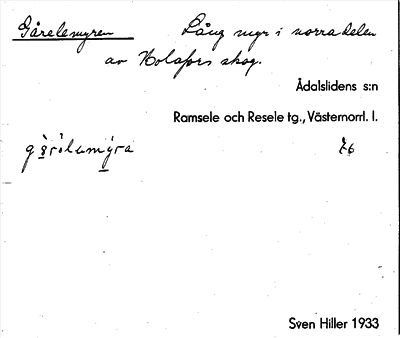 Gårelemyren Lång myr i norra delen
av Holafors skog.
Ådalslidens s:n
Ramsele och Resele tg., Västernorrl. l.
Sven Hiller 1933